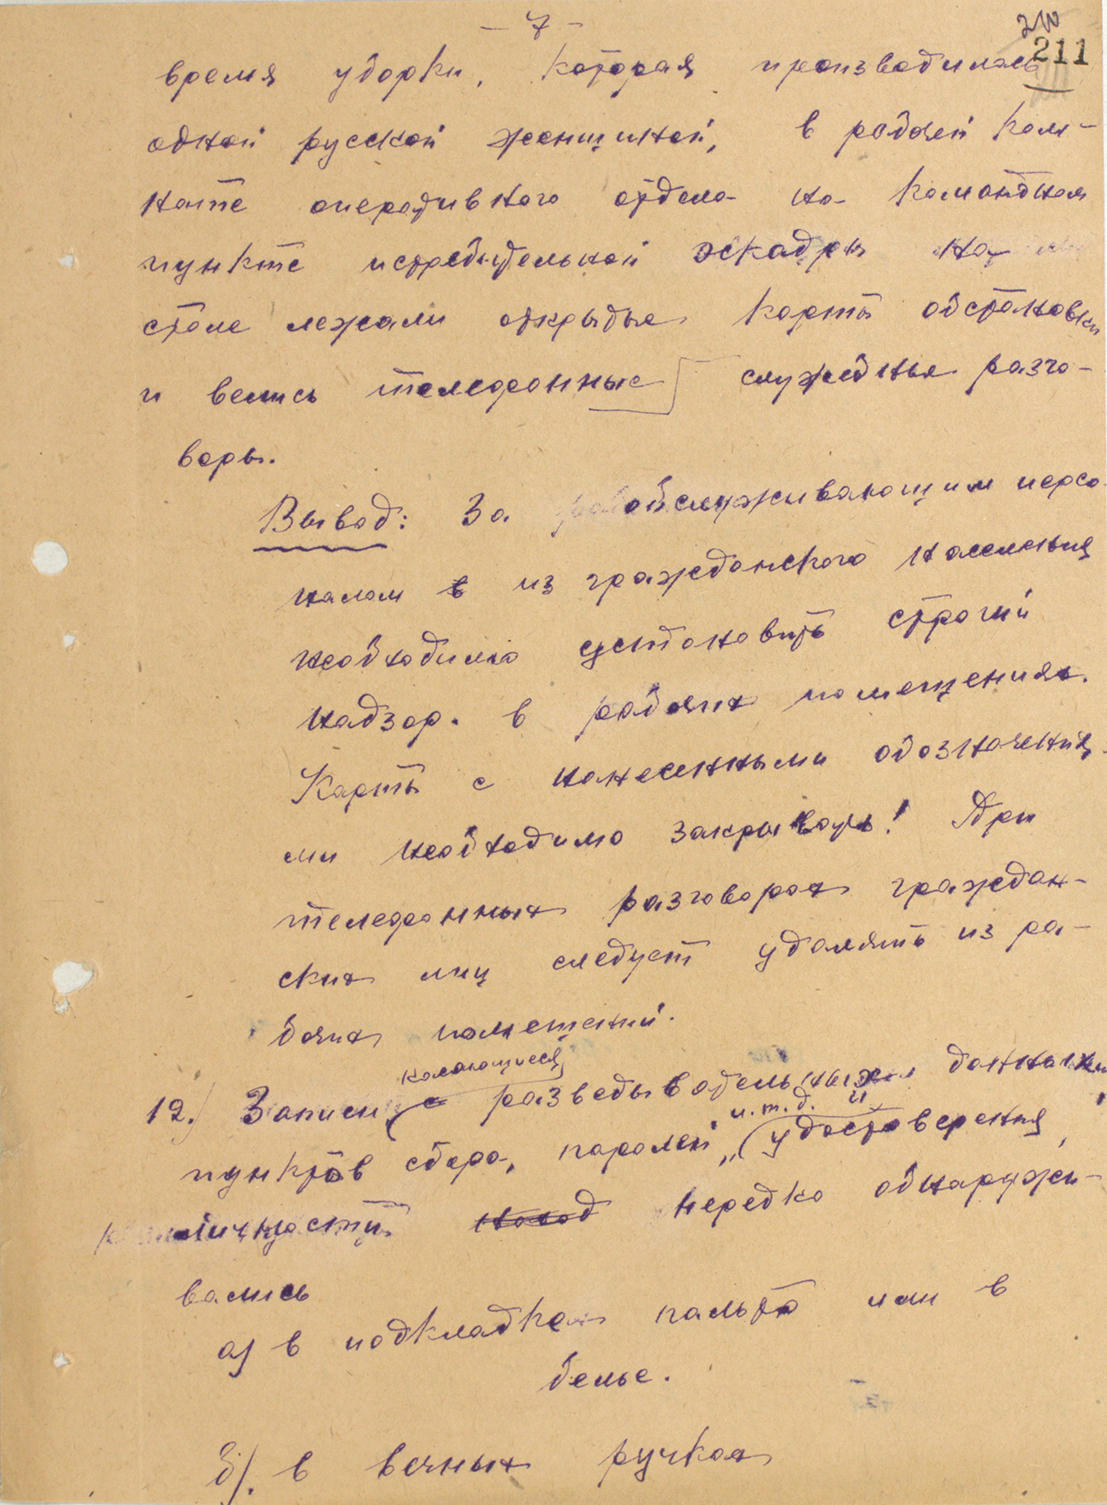 - 7 -
210
211
время уборки, которая производилась
одной русской женщиной, в рабочей ком-
нате оперативного отдела на командном
пункте истребительной эскадры на
столе лежали открытые карты обстановки
и велись телефонные служебные разго-
воры.
Вывод: За обслуживающим персо-
налом из гражданского населения
необходимо установить строгий
надзор. в рабочих помещениях.
Карты с нанесенными обозначения-
ми необходимо закрывать! При
телефонных разговорах граждан-
ских лиц следует удалять из ра-
бочих помещений.
касающиеся
12.) Записи, разведывательных данных,
и.т.д. и
пунктов сбора, паролей, удостоверения
личности нередко обнаружи-
вались
а) в подкладках пальто или в
белье.
б). в вечных ручках